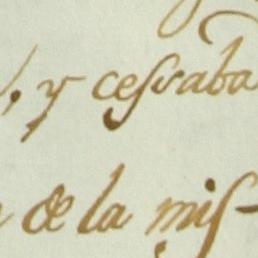 , y cesaba
de la mis-